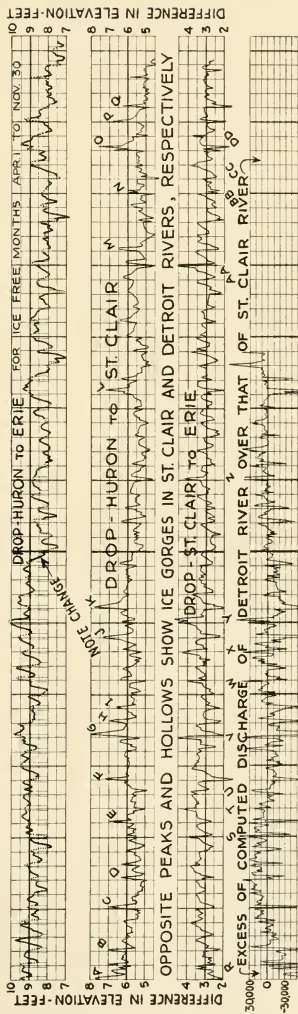 DIFFERENCE IN ELEVATION-FEET
DIFFERENCE IN ELEVATION-FEET
10 9 8 7
10 9 8 7
DROP-HURON TO ERIE FOR ICE FREE MONTHS APRIL TO NOV. 30
NOTE CHANGE
8 7 6 5
8 7 6 5
DROP-HURON TO ST. CLAIR
A B C D E F G H I J K M N O P Q
OPPOSITE PEAKS AND HOLLOWS SHOW ICE GORGES IN ST. CLAIR AND DETROIT RIVERS, RESPECTIVELY
4 3 2
4 3 2
DROP-ST. CLAIR TO ERIE
R S T U V W X Y Z AA BB CC DD
EXCESS OF COMPUTED DISCHARGE OF DETROIT RIVER OVER THAT OF ST. CLAIR RIVER
30,000
0
-30,000
30,000
0
-30,000